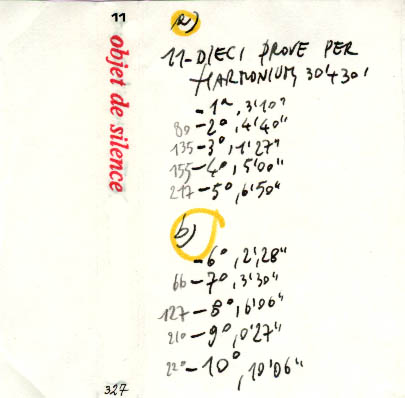 11
objet de silence
327
a)
11-DIECI PROVE PER
HARMONIUM, 30'+30'
-1ª, 3'10"
80 -2°, 4'40"
135 -3°, 1'27"
155 -4°, 5'00"
217 -5°, 6'50"
b)
-6°, 2',28"
66 -7°, 3'30"
127 -8°, 6'06"
210 -9°, 0'27"
220 -10°, 10'06"